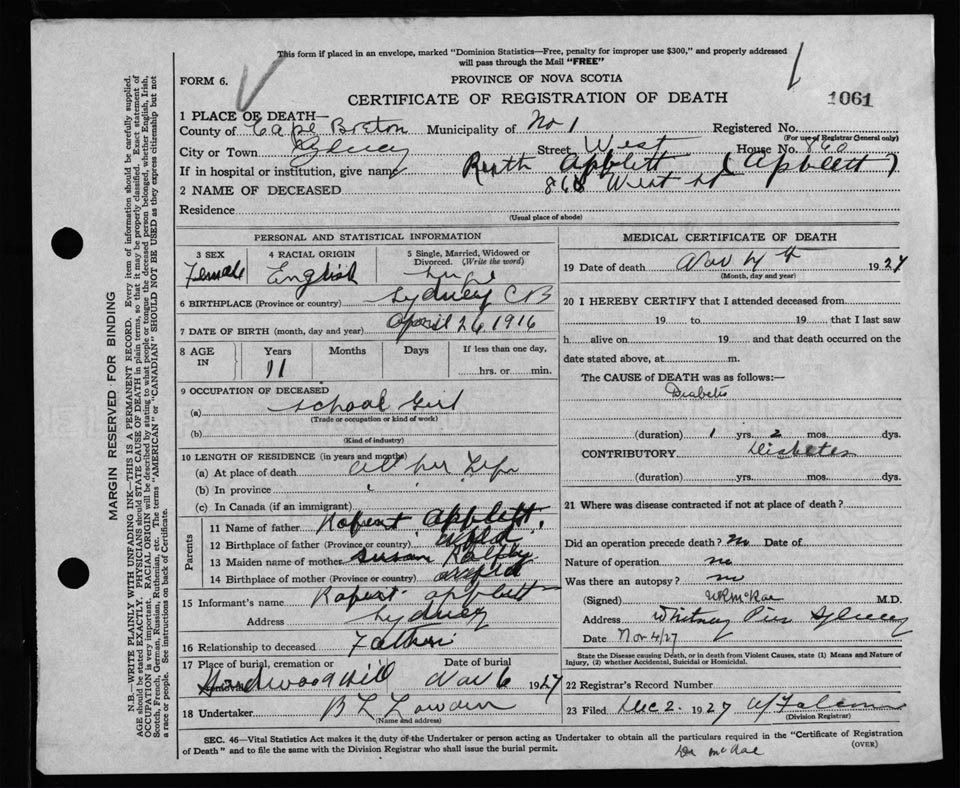 This form if placed in an envelope, marked "Dominion Statistics—Free, penalty for improper use $300," and properly addressed
will pass through the Mail "FREE"
FORM 6.
PROVINCE OF NOVA SCOTIA
CERTIFICATE OF REGISTRATION OF DEATH
1061
1 PLACE OF DEATH—
County of Cape Breton Municipality of No 1 Registered No.
(For use of Registrar General only)
City or Town Sydney Street West House No. 860
If in hospital or institution, give name
2 NAME OF DECEASED Ruth Applett (Applett)
Residence 860 West St
(Usual place of abode)
PERSONAL AND STATISTICAL INFORMATION
3 SEX Female
4 RACIAL ORIGIN English
5 Single, Married, Widowed or Divorced. (Write the word)
6 BIRTHPLACE (Province or country) Sydney CB
7 DATE OF BIRTH (month, day and year) April 26 1916
8 AGE IN Years 11 Months Days If less than one day, hrs. or min.
9 OCCUPATION OF DECEASED
(a) School Girl
(Trade or occupation or kind of work)
(b)
(Kind of industry)
10 LENGTH OF RESIDENCE (in years and months)
(a) At place of death all her Life
(b) In province
(c) In Canada (if an immigrant)
Parents
11 Name of father Robert Applett
12 Birthplace of father (Province or country)
13 Maiden name of mother Susan
14 Birthplace of mother (Province or country)
15 Informant's name Robert Applett
Address Sydney
16 Relationship to deceased Father
17 Place of burial, cremation or removal Hardwood Hill Date of burial Nov 6 1927
18 Undertaker
(Name and address)
MEDICAL CERTIFICATE OF DEATH
19 Date of death Nov 4th 1927
(Month, day and year)
20 I HEREBY CERTIFY that I attended deceased from
19 to 19 that I last saw
h alive on 19 and that death occurred on the
date stated above, at m.
The CAUSE of DEATH was as follows:—
Diabetes
(duration) 1 yrs. 2 mos. dys.
CONTRIBUTORY Diabetes
(duration) yrs. mos. dys.
21 Where was disease contracted if not at place of death?
Did an operation precede death? no Date of
Nature of operation no
Was there an autopsy? no
(Signed) McRae M.D.
Address Whitney Pier Sydney
Date Nov 4/27
State the Disease causing Death, or in death from Violent Causes, state (1) Means and Nature of
Injury, (2) whether Accidental, Suicidal or Homicidal.
22 Registrar's Record Number
23 Filed Dec 2. 1927
(Division Registrar)
SEC. 46—Vital Statistics Act makes it the duty of the Undertaker or person acting as Undertaker to obtain all the particulars required in the "Certificate of Registration
of Death" and to file the same with the Division Registrar who shall issue the burial permit.
(OVER)
Dr McRae
MARGIN RESERVED FOR BINDING
N.B.—WRITE PLAINLY WITH UNFADING INK—THIS IS A PERMANENT RECORD. Every item of information should be carefully supplied.
AGE should be stated EXACTLY. PHYSICIANS should STATE CAUSE OF DEATH in plain terms, so that it may be properly classified. Exact statement of
OCCUPATION is very important. RACIAL ORIGIN will be described by stating to what people or tongue the deceased person belonged, whether English, Irish,
Scotch, French, German, Russian, Ruthenian, etc. The terms "AMERICAN" or "CANADIAN" SHOULD NOT BE USED as they express citizenship but not
a race or people. See instructions on back of Certificate.